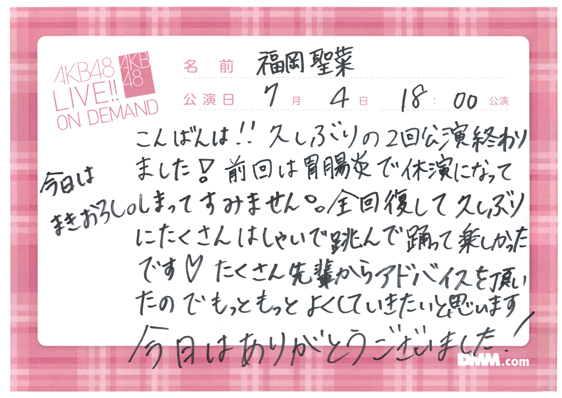 AKB48
LIVE!!
ON DEMAND
AKB
48
名前 福岡聖菜
公演日 7月 4日 18:00 公演
こんばんは!! 久しぶりの2回公演終わり
ました! 前回は胃腸炎で休演になって
しまってすみません。全回復して久しぶり
にたくさんはしゃいで跳んで踊って楽しかった
です♡ たくさん先輩からアドバイスを頂い
たのでもっともっとよくしていきたいと思います
今日はありがとうございました!
今日は
まきおろし。
DMM.com